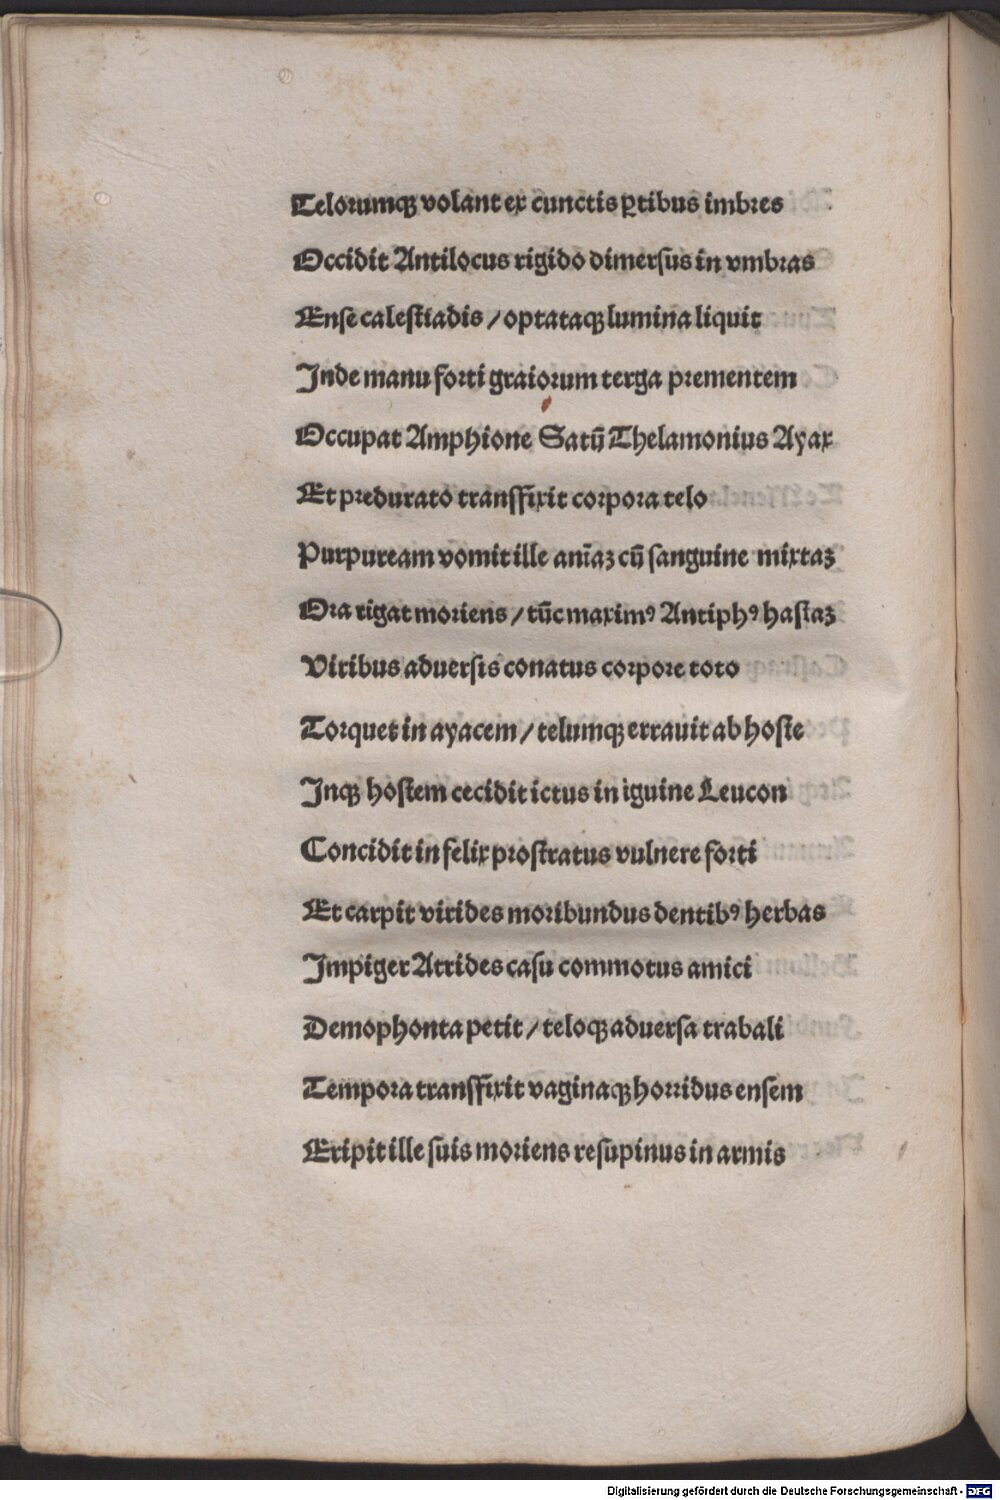 Telorumqꝫ volant ex cunctis ꝑtibus imbres
Occidit Antilocus rigido dimersus in vmbras
Ense calestiadis / optataqꝫ lumina liquit
Inde manu forti graiorum terga prementem
Occupat Amphione Satū Thelamonius Ayax
Et predurato transffixit corpora telo
Purpuream vomit ille anīaꝫ cū sanguine mixtaꝫ
Ora rigat moriens / tūc maximꝰ Antiphꝰ hastaꝫ
Viribus aduersis conatus corpore toto
Torquet in ayacem / telumqꝫ errauit ab hoste
Inqꝫ hostem cecidit ictus in iguine Leucon
Concidit in felix prostratus vulnere forti
Et carpit virides moribundus dentibꝰ herbas
Impiger Atrides casu commotus amici
Demophonta petit / teloqꝫ aduersa trabali
Tempora transffixit vaginaqꝫ horridus ensem
Eripit ille suis moriens resupinus in armis
Digitalisierung gefördert durch die Deutsche Forschungsgemeinschaft - DFG